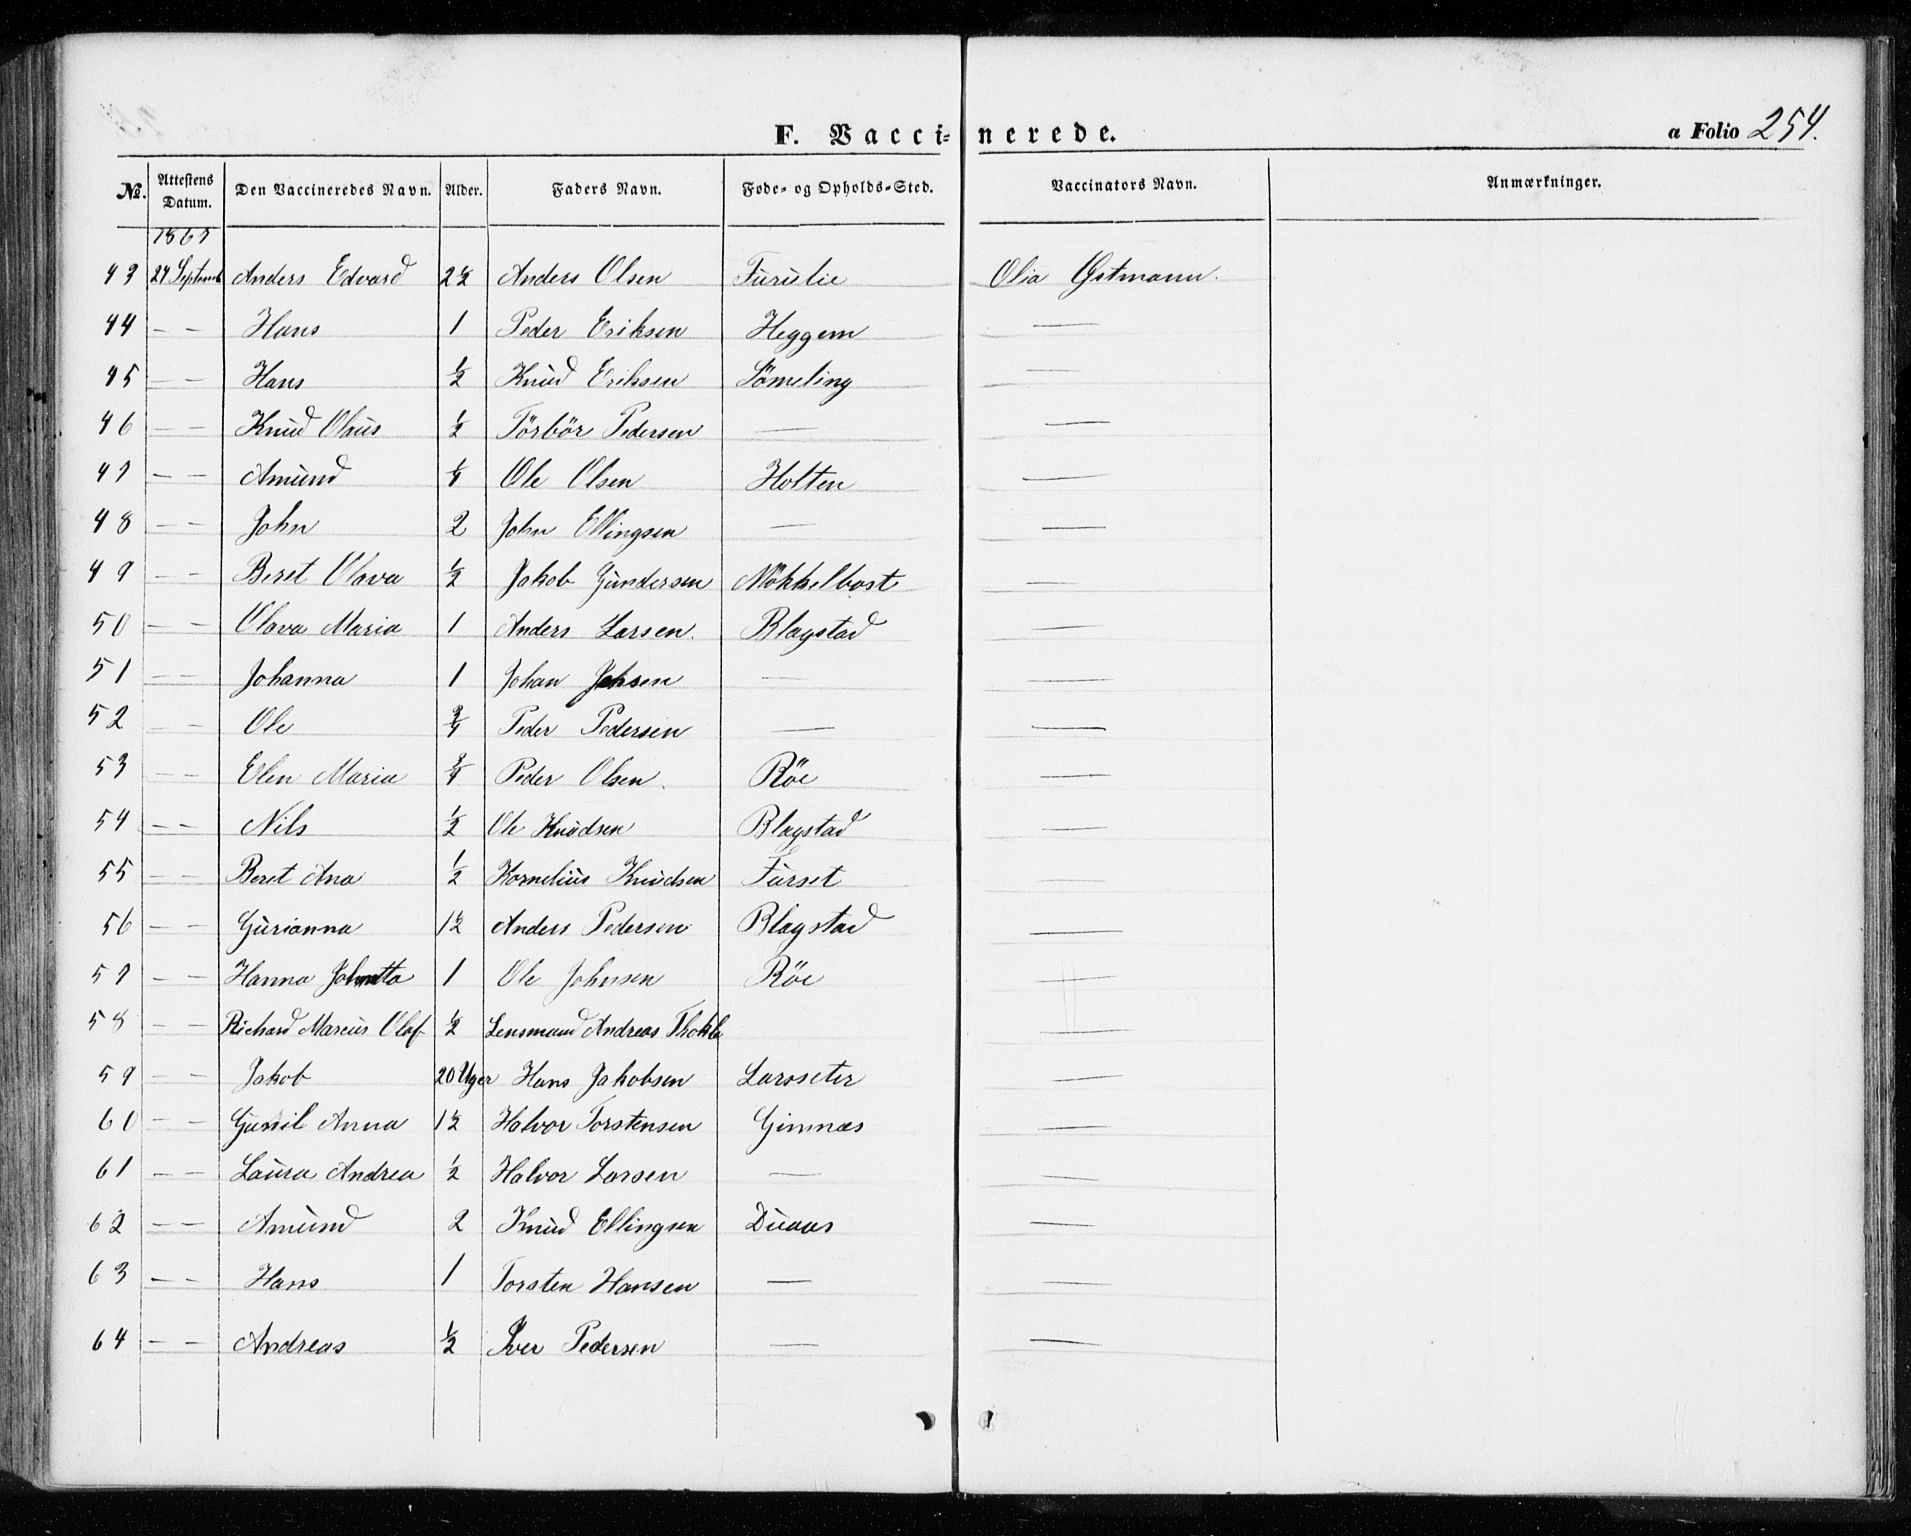 F. Vaccinerede. a Folio 254.
№. Attestens Datum. Den Vaccineredes Navn. Alder. Faders Navn. Føde- og Opholds-Sted. Vaccinators Navn. Anmærkninger.
43 27 Septemb Anders Edvard 2½ Anders Olsen Furulie Olia Østmann.
44 — — Hans 1 Peder Eriksen Heggem —
45 — — Hans ½ Knud Eriksen Sömeling —
46 — — Knud Olaus ½ Törbör Pedersen — —
47 — — Amund ¼ Ole Olsen Holten —
48 — — John 2 John Ellingsen — —
49 — — Beret Olava ½ Jakob Gundersen Nökkelbost —
50 — — Olava Maria 1 Anders Larsen. Blagstad —
51 — — Johanna 1 Johan — —
52 — — Ole ¾ Peder Pedersen — —
53 — — Elen Maria ¾ Peder Olsen. Röe —
54 — — Nils ½ Ole Knudsen Blagstad —
55 — — Beret Ana ½ Kornelius Knudsen Furset —
56 — — Gurianna 1½ Anders Pedersen Blagstad —
57 — — Hanna 1 Ole Johnsen Röe —
58 — — Richard Marcus Olaf ½ Lensmand Andreas —
59 — — Jakob 20 Uger Hans Jakobsen Larsseter —
60 — — Gunil Anna 1½ Halvor Torstensen Gimnæs —
61 — — Laura Andrea ½ Halvor Larsen — —
62 — — Amund 2 Knud Ellingsen Duaas —
63 — — Hans 1 Torsten Hansen — —
64 — — Andreas ½ Iver Pedersen — —